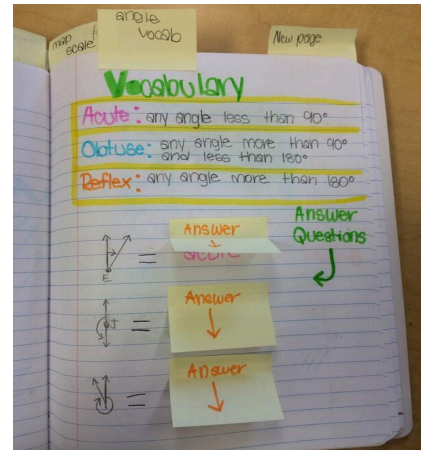 angle
vocab
map
scale
New page
Vocabulary
Acute: any angle less than 90°
Obtuse: any angle more than 90°
and less than 180°
Reflex: any angle more than 180°
Answer
Questions
Answer
acute
E
=
Answer
J
=
Answer
=